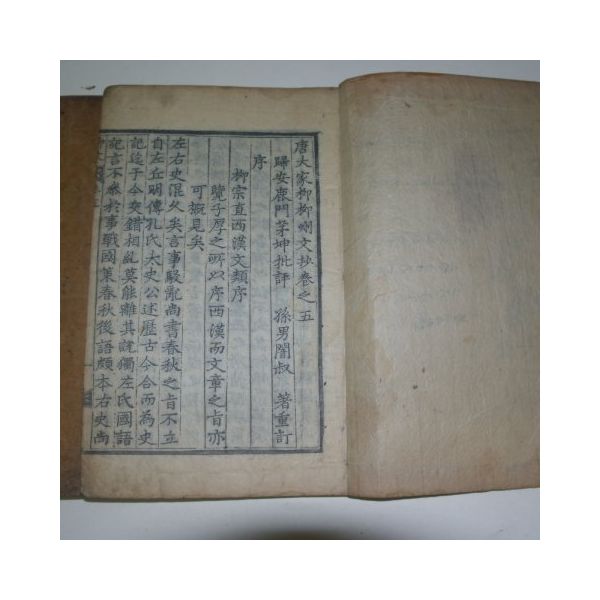 唐大家柳柳州文抄卷之五
歸安鹿門茅坤批評 孫男闇叔 著重訂
序
柳宗直西漢文類序
覽子厚之所以序西漢而文章之旨亦
可概見矣
左右史混久矣言事駁亂尚書春秋之旨不立
自左丘明傳孔氏太史公述歷古今合而為史
記迄于今交錯相糺莫能離其說獨左氏國語
記言不參於事戰國策春秋後語頗本右史尚